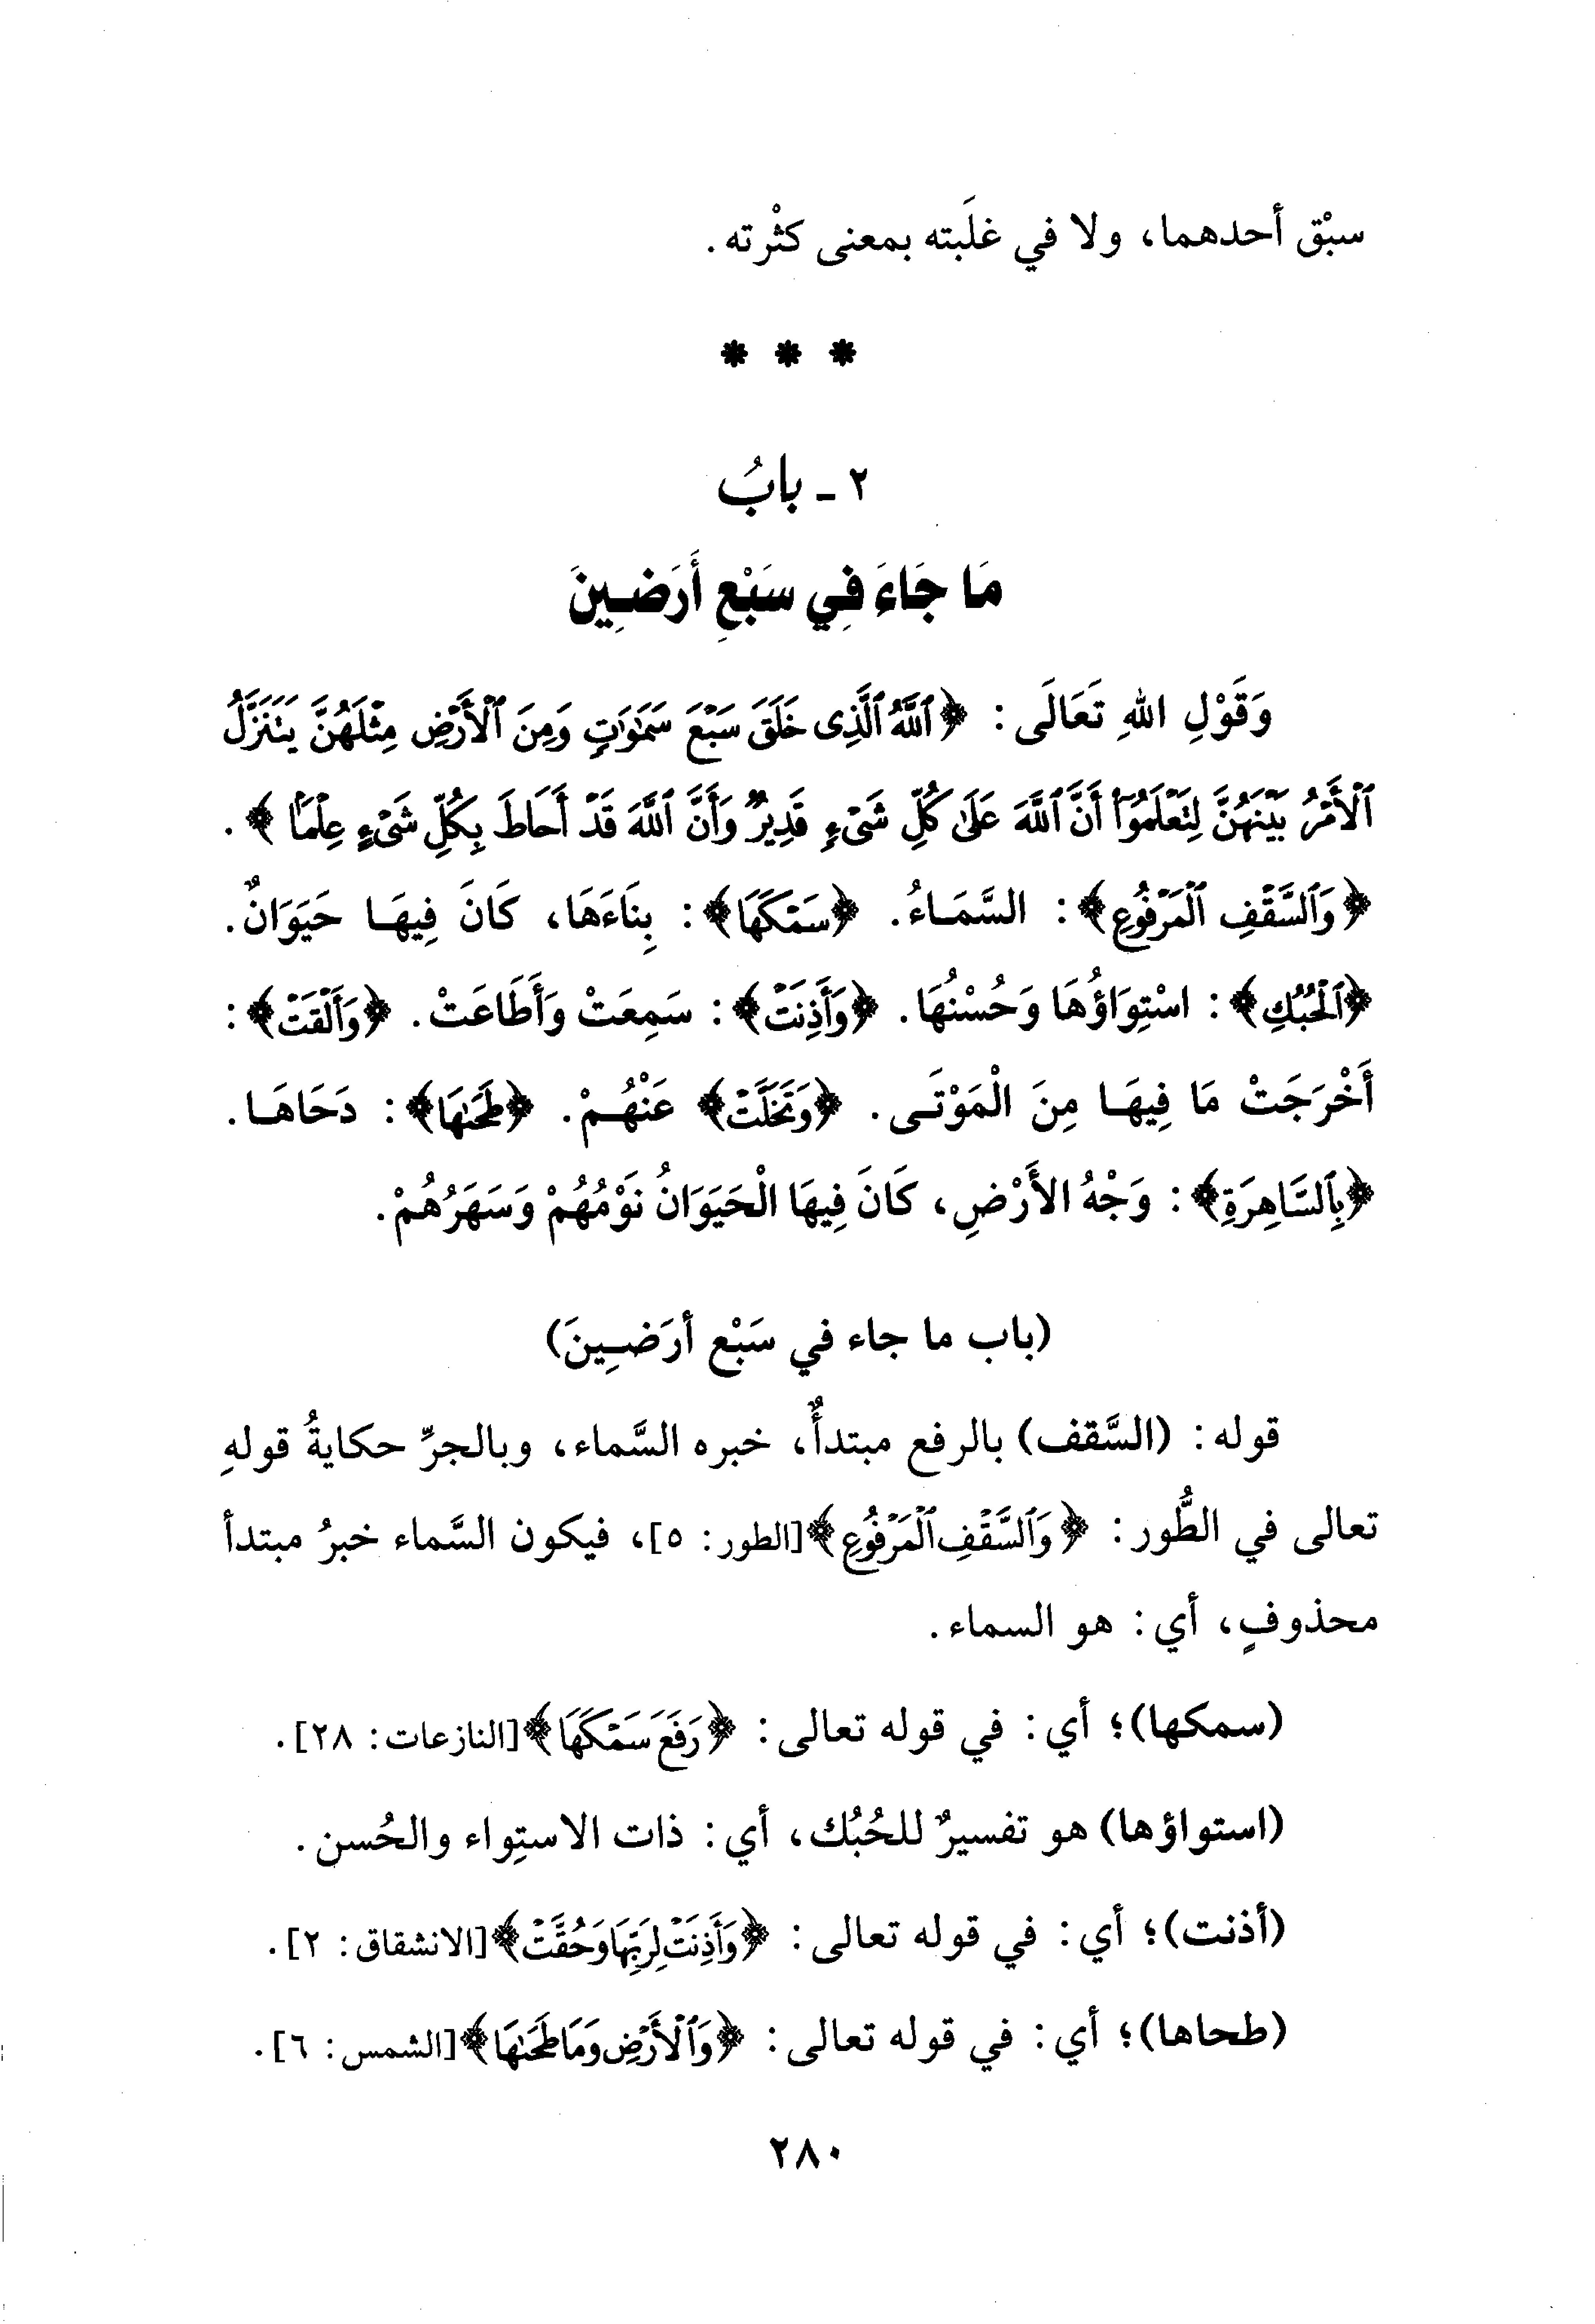 سبْق أحدهما، ولا في غلَبته بمعنى كثْرته.
* * *
٢ - بابُ
مَا جَاءَ فِي سَبْعِ أَرَضِينَ
وَقَوْلِ اللهِ تَعَالَى: ﴿ٱللَّهُ ٱلَّذِى خَلَقَ سَبْعَ سَمَٰوَٰتٍ وَمِنَ ٱلْأَرْضِ مِثْلَهُنَّ يَتَنَزَّلُ
ٱلْأَمْرُ بَيْنَهُنَّ لِتَعْلَمُوٓا۟ أَنَّ ٱللَّهَ عَلَىٰ كُلِّ شَىْءٍ قَدِيرٌ وَأَنَّ ٱللَّهَ قَدْ أَحَاطَ بِكُلِّ شَىْءٍ عِلْمًۢا﴾.
﴿وَٱلسَّقْفِ ٱلْمَرْفُوعِ﴾: السَّمَاءُ. ﴿سَمْكَهَا﴾: بِنَاءَهَا، كَانَ فِيهَا حَيَوَانٌ.
﴿ٱلْحُبُكِ﴾: اسْتِوَاؤُهَا وَحُسْنُهَا. ﴿وَأَذِنَتْ﴾: سَمِعَتْ وَأَطَاعَتْ. ﴿وَأَلْقَتْ﴾:
أَخْرَجَتْ مَا فِيهَا مِنَ الْمَوْتَى. ﴿وَتَخَلَّتْ﴾ عَنْهُمْ. ﴿طَحَىٰهَا﴾: دَحَاهَا.
﴿بِٱلسَّاهِرَةِ﴾: وَجْهُ الأَرْضِ، كَانَ فِيهَا الْحَيَوَانُ نَوْمُهُمْ وَسَهَرُهُمْ.
(باب ما جاء في سَبْع أرَضِينَ)
قوله: (السَّقف) بالرفع مبتدأٌ، خبره السَّماء، وبالجرِّ حكايةُ قولهِ
تعالى في الطُّور: ﴿وَٱلسَّقْفِ ٱلْمَرْفُوعِ﴾[الطور: ٥]، فيكون السَّماء خبرُ مبتدأ
محذوفٍ، أي: هو السماء.
(سمكها)؛ أي: في قوله تعالى: ﴿رَفَعَ سَمْكَهَا﴾[النازعات: ٢٨].
(استواؤها) هو تفسيرٌ للحُبُك، أي: ذات الاستِواء والحُسن.
(أذنت)؛ أي: في قوله تعالى: ﴿وَأَذِنَتْ لِرَبِّهَا وَحُقَّتْ﴾[الانشقاق: ٢].
(طحاها)؛ أي: في قوله تعالى: ﴿وَٱلْأَرْضِ وَمَا طَحَىٰهَا﴾[الشمس: ٦].
٢٨٠